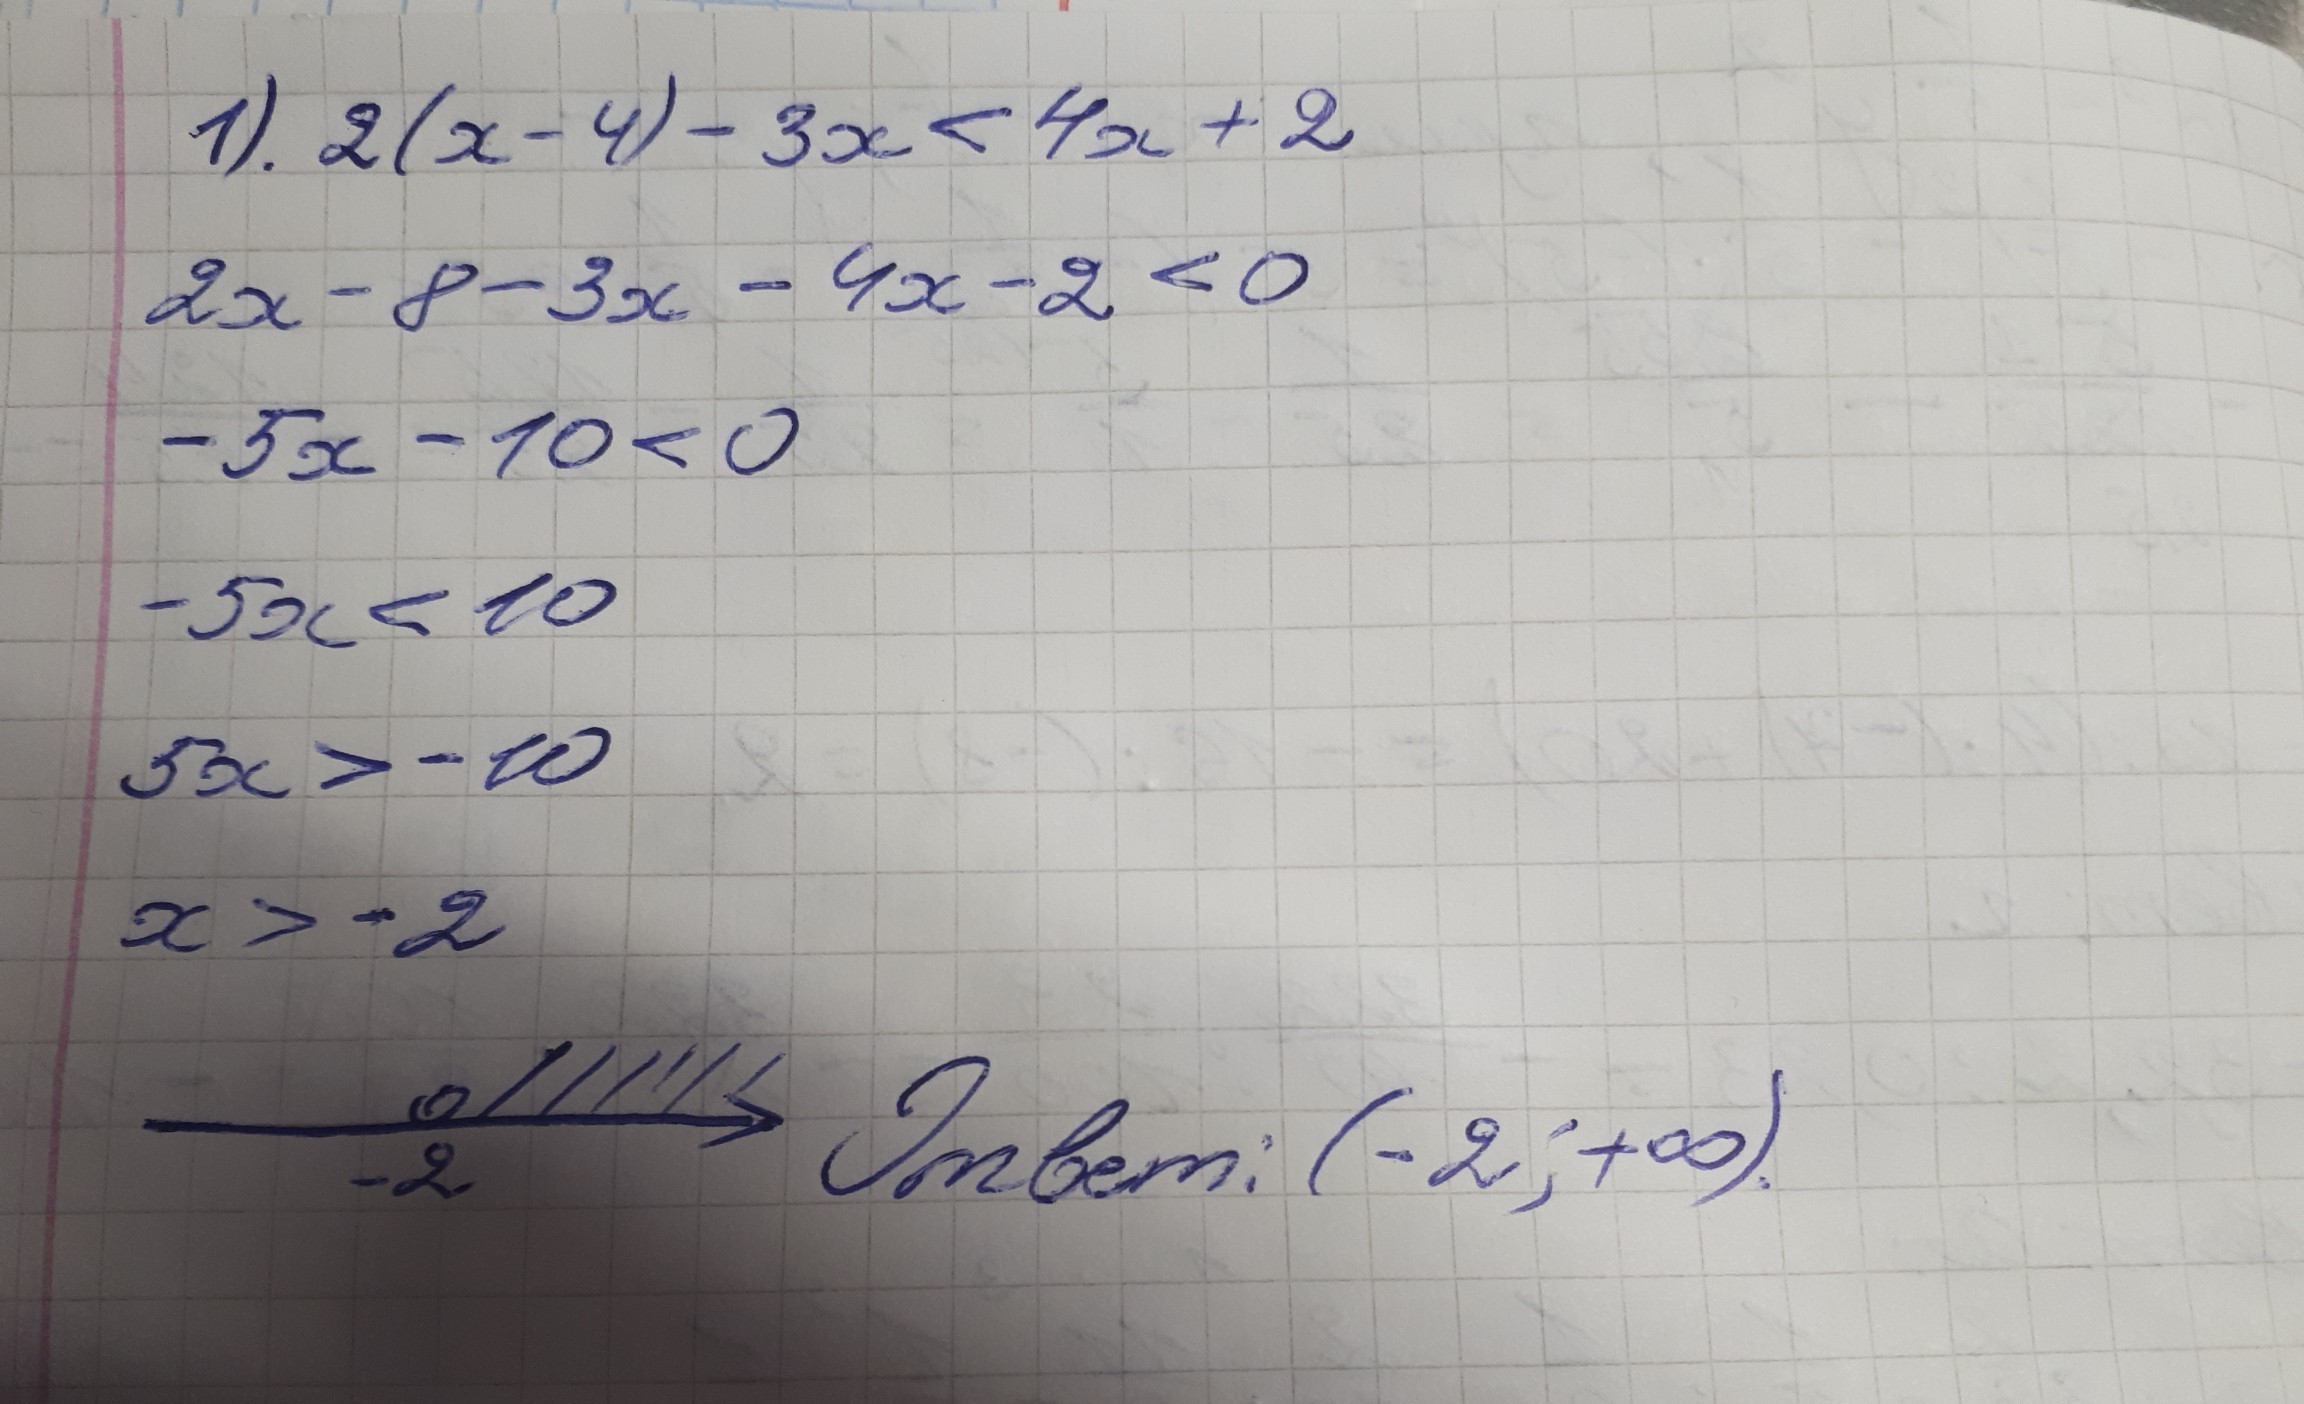 1). 2(x-4)-3x<4x+2
2x-8-3x-4x-2<0
-5x-10<0
-5x<10
5x>-10
x>-2
-2
Ответ: (-2;+∞).